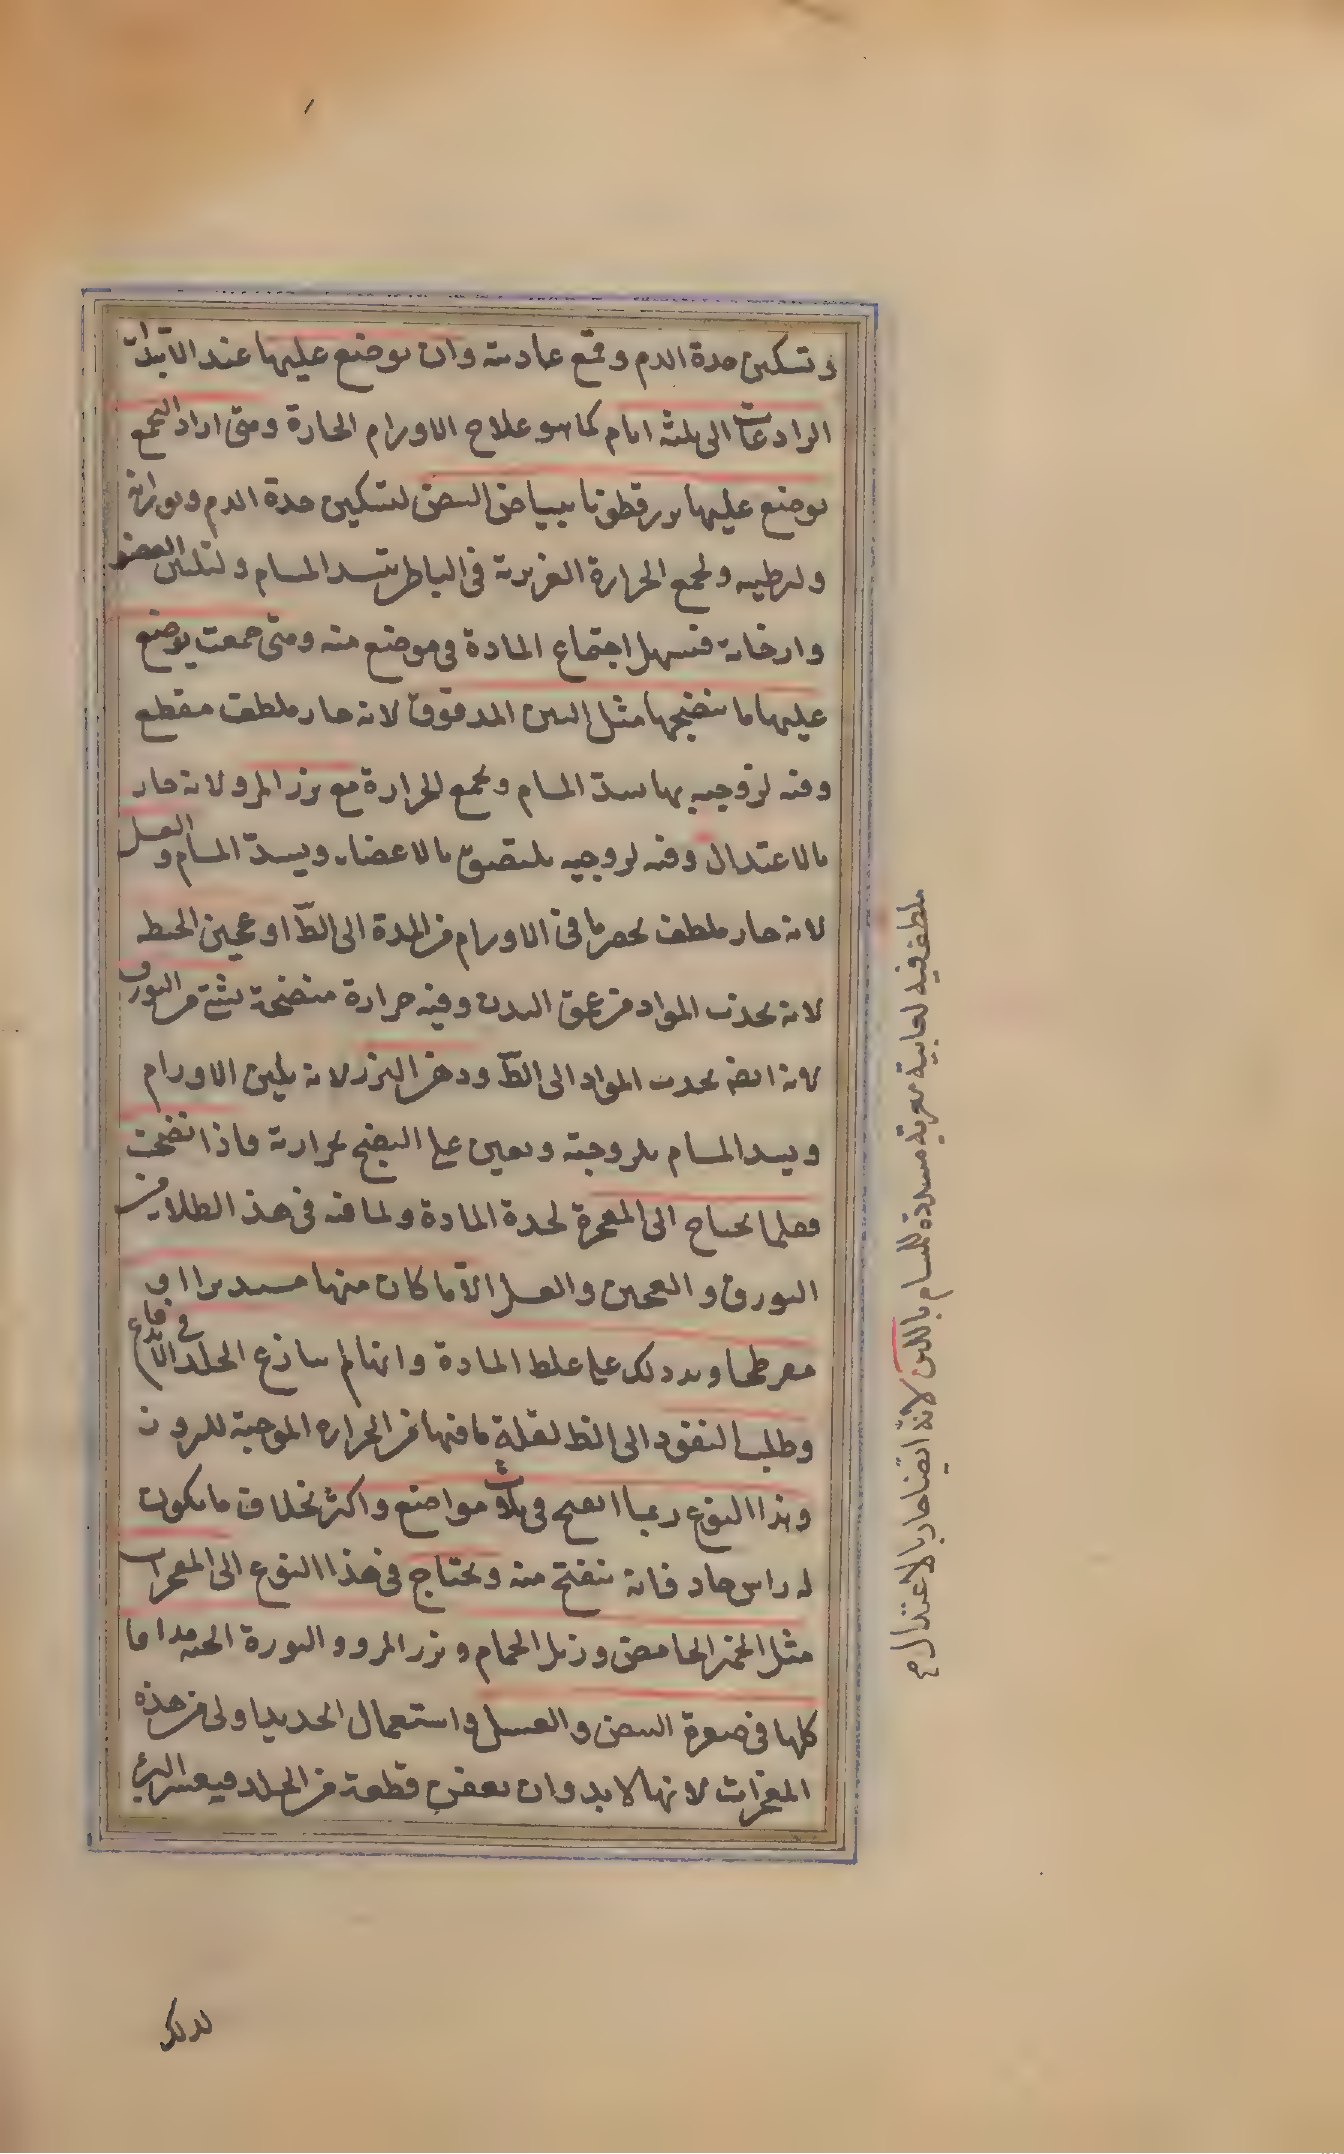 وتسكين حدة الدم وقمع عاديته وان يوضع عليها عند الابتداء
الرادعات الى ثلثة ايام كما هو علاج الاورام الحارة ومتى اراد التجمع
يوضع عليها بزرقطونا ببياض البيض لتسكين حدة الدم وفورانه
ولترطيبه ولجمع الحرارة الغريزية فى الباطن بسد المسام ولتليين العضو
وارخائه فيسهل اجتماع المادة فى موضع منه ومتى جمعت يوضع
عليها ما ينضجها مثل التين المدقوق لانه حار ملطف مقطع
وفيه لزوجة بها يسد المسام ويجمع الحرارة مع بزر المرو لانه حار
بالاعتدال وفيه لزوجية يلتصق بالاعضاء ويسد المسام والعسل
لانه حار ملطف يحضر ما فى الاورام من المدة الى الظ او عجين الحنطة
لانه يجذب المواد من عمق البدن وفيه حرارة منضجة بشئ من البورق
لانه ايضا يجذب المواد الى الظ ودهن البزر لانه يلين الاورام
ويسد المسام بلزوجته ويعين على النضج بحرارته فاذا نضجت
فقلما يحتاج الى المفجرة لحدة المادة ولما فيه فى هذا الطلاء من
البورق والعجين والعسل الا ما كان منها مستديرا او
مفرطحا ويدل ذلك على غلظ المادة وانها لم تنازع الجلد فى الاندفاع
وطلب النفوذ الى الظ لقلة ما فيها من الحرارة الموجبة للبروز
وهذا النوع ربما انفتح فى ثلاث مواضع واكثر بخلاف ما يكون
له راس حاد فانه ينفتح منه ويحتاج فى هذا النوع الى المفجرات
مثل الخمير الحامض وزبل الحمام وبزر المرو والنورة الحية مدافا
كلها فى صفرة البيض والعسل واستعمال الحديد اولى من هذه
المفجرات لانها لا بد وان يعفن قطعة من الجلد فيعسر البرء
ملطف فيه لعابية مغرية مسددة للمسام باللبن لانه ايضا حار بالاعتدال م
لذلك